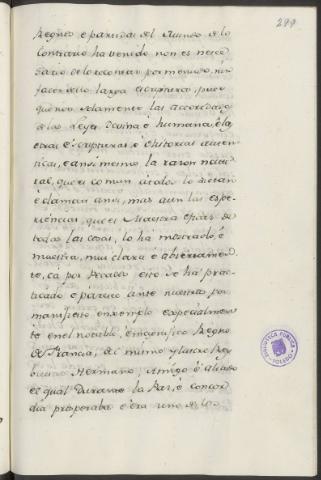 299
Regnos e partidas del Mundo de lo
Contrario ha venido non es neces
sario de lo recontar por menudo, nin
facer dello larga escriptura, pues
que non solamente las auctoridades
de las Leyes Divina è humana, è la
otras Escripturas è Historias auten
ticas, e ansi mesmo la razon natu
ral, que es comun à todos lo dictan
e claman ansi, mas aun las espe
riencias, que es Maestra eficaz de
todas las cosas, lo ha mostrado, è
muestra, mui clara è abiertamen
te, ca por Pecados esto se ha prac
ticado è parece ante nuestros por
manifiesto enxemplo especialmen
te en el notable, è magnifico Regno
de Francia, del mismo ylustre Rey
buestro Hermano, Amigo è aliado
el qual Durante la Paz, è concor
dia prosperaba è era uno de los
BIBLIOTECA PUBLICA
TOLEDO